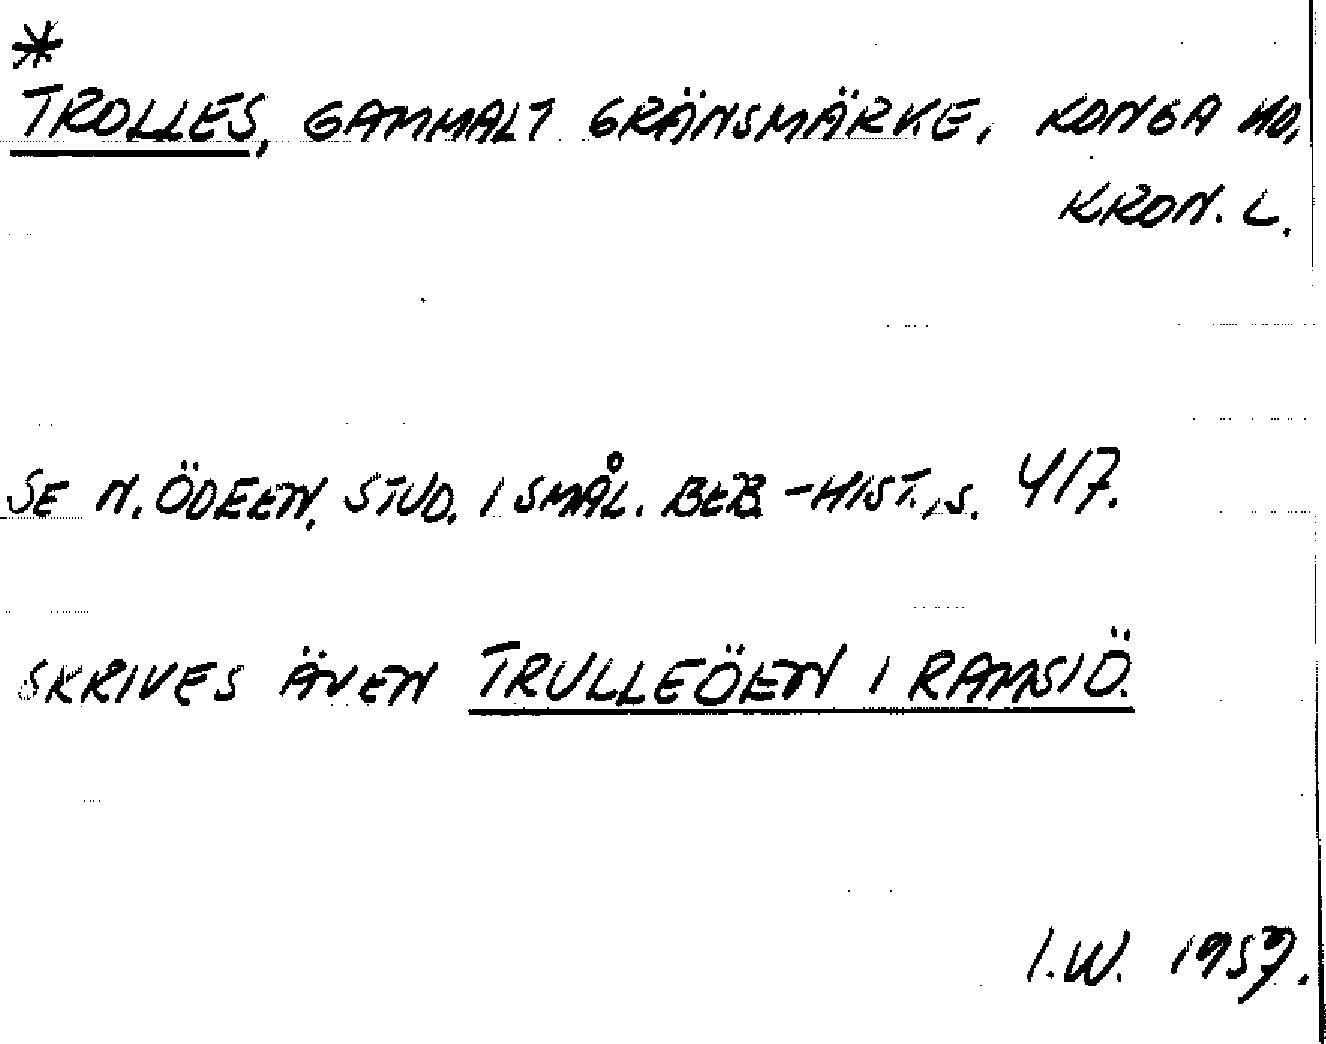 *
TROLLES, GAMMALT GRÄNSMÄRKE, KONGA HD,
KRON. L.
SE N. ÖDEEN, STUD. I SMÅL. BEB.-HIST., S. 417.
SKRIVES ÄVEN TRULLEÖEN I RAMSIÖ.
I.W. 1959.